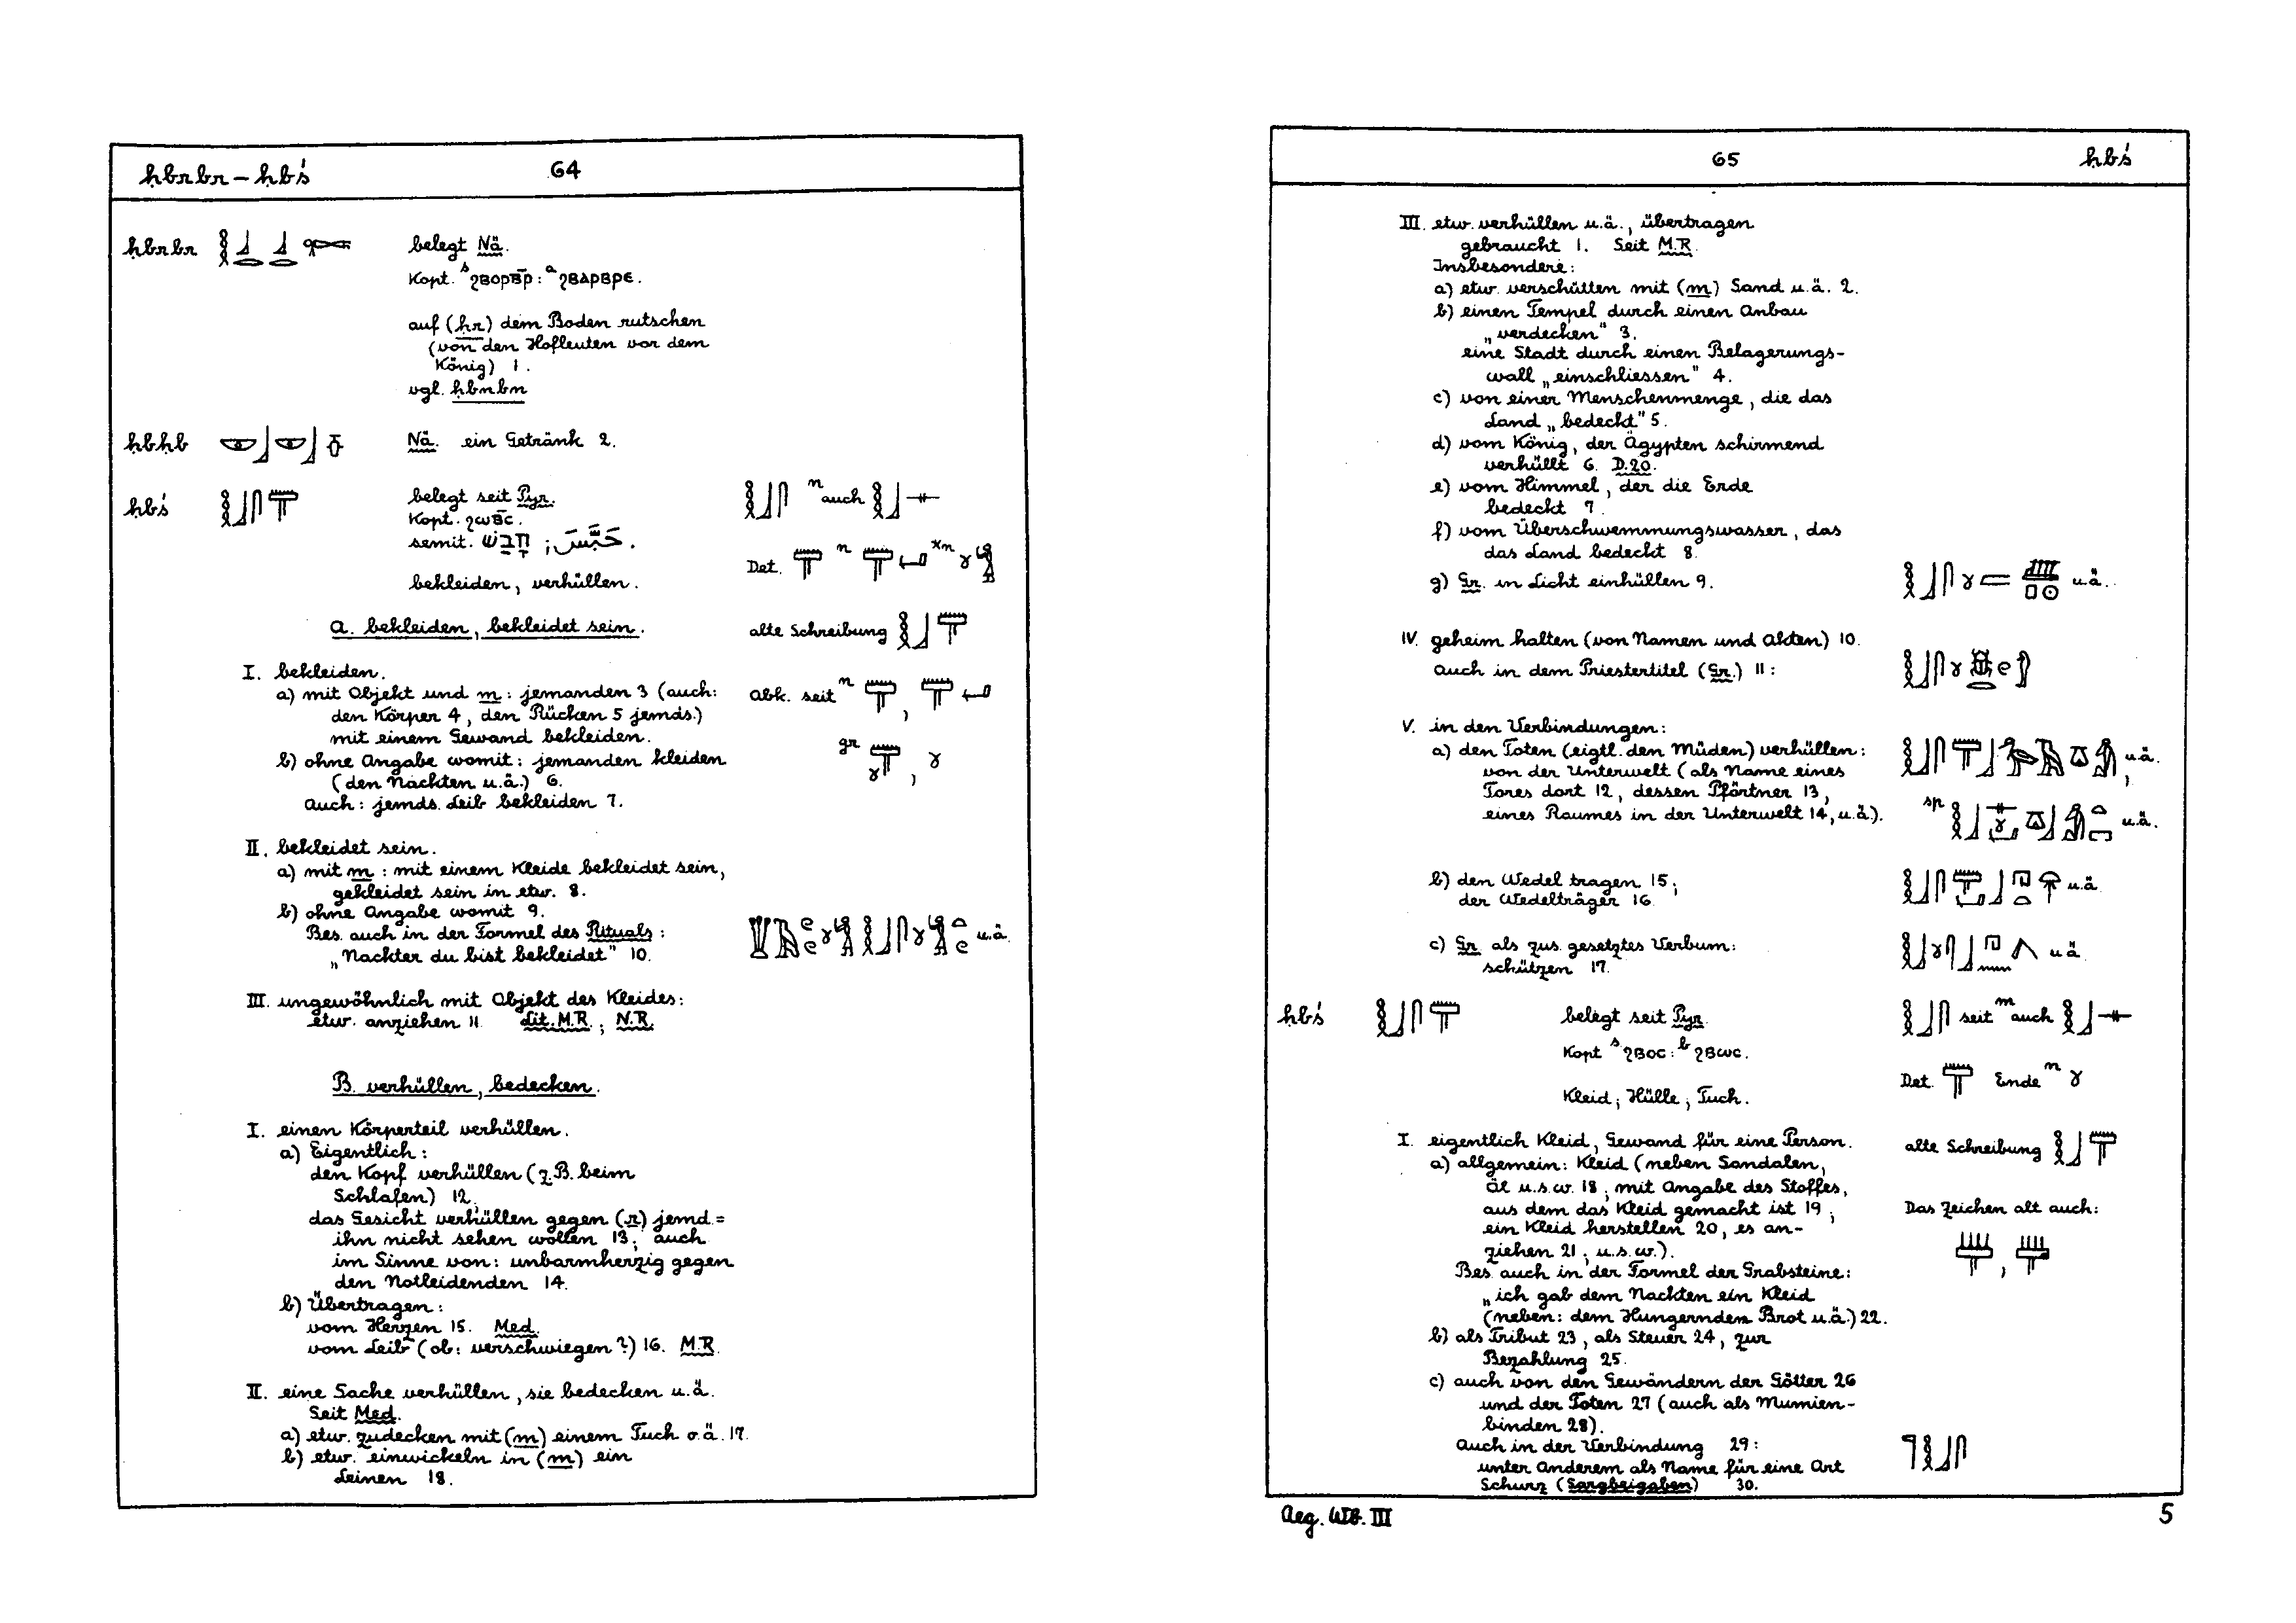 ḥbrbr – ḥbś 64
ḥbrbr belegt Nä.
Kopt. ˢϩⲃⲟⲣⲃ̅ⲣ̅ : ᵃϩⲃⲁⲣⲃⲣⲉ.
auf (ḥr) dem Boden rutschen
(von den Hofleuten vor dem
König) 1.
vgl. ḥbnbn
ḥbḥb Nä. ein Getränk 2.
ḥbś belegt seit Pyr. n auch
Kopt. ϩⲱⲃ̅ⲥ̅.
semit. חָבַשׁ ; حَبَّسَ.
Det. n n
bekleiden, verhüllen.
A. bekleiden, bekleidet sein. alte Schreibung
I. bekleiden.
a) mit Objekt und m: jemanden 3 (auch: Abk. seit n ,
den Körper 4, den Rücken 5 jemds.)
mit einem Gewand bekleiden.
b) ohne Angabe womit: jemanden kleiden gr ,
(den Nackten u.ä.) 6.
Auch: jemds. Leib bekleiden 7.
II. bekleidet sein.
a) mit m: mit einem Kleide bekleidet sein,
gekleidet sein in etw. 8.
b) ohne Angabe womit 9.
Bes. auch in der Formel des Rituals: u.ä.
„Nackter du bist bekleidet" 10.
III. ungewöhnlich mit Objekt des Kleides:
etw. anziehen 11. Lit. M.R.; N.R.
B. verhüllen, bedecken.
I. einen Körperteil verhüllen.
a) Eigentlich:
den Kopf verhüllen (z.B. beim
Schlafen) 12.
das Gesicht verhüllen gegen (r) jemd =
ihn nicht sehen wollen 13; auch
im Sinne von: unbarmherzig gegen
den Notleidenden 14.
b) Übertragen:
vom Herzen 15. Med.
vom Leib (ob: verschwiegen?) 16. M.R.
II. eine Sache verhüllen, sie bedecken u.ä.
Seit Med.
a) etw. zudecken mit (m) einem Tuch o.ä. 17.
b) etw. einwickeln in (m) ein
Leinen 18.
65 ḥbś
III. etw. verhüllen u.ä., übertragen
gebraucht 1. Seit M.R.
Insbesondere:
a) etw. verschütten mit (m) Sand u.ä. 2.
b) einen Tempel durch einen Anbau
„verdecken" 3.
eine Stadt durch einen Belagerungs-
wall „einschliessen" 4.
c) von einer Menschenmenge, die das
Land „bedeckt" 5.
d) vom König, der Ägypten schirmend
verhüllt 6. D.20.
e) vom Himmel, der die Erde
bedeckt 7.
f) vom Überschwemmungswasser, das
das Land bedeckt 8.
g) Gr. in Licht einhüllen 9. u.ä.
IV. geheim halten (von Namen und Akten) 10.
auch in dem Priestertitel (Gr.) 11:
V. in den Verbindungen:
a) den Toten (eigtl. den Müden) verhüllen: u.ä.,
von der Unterwelt (als Name eines
Tores dort 12, dessen Pförtner 13,
eines Raumes in der Unterwelt 14, u.ä.). sp u.ä.
b) den Wedel tragen 15; u.ä.
der Wedelträger 16.
c) Gr. als zus. gesetztes Verbum: u.ä.
schützen 17.
ḥbś belegt seit Pyr. seit m auch
Kopt. ˢϩⲃⲟⲥ : ᵇϩⲃⲱⲥ.
Det. Ende n
Kleid; Hülle; Tuch.
I. eigentlich Kleid, Gewand für eine Person. alte Schreibung
a) allgemein: Kleid (neben Sandalen,
Öl u.s.w. 18; mit Angabe des Stoffes,
aus dem das Kleid gemacht ist 19; Das Zeichen alt auch:
ein Kleid herstellen 20, es an-
ziehen 21; u.s.w.). ,
Bes. auch in der Formel der Grabsteine:
„ich gab dem Nackten ein Kleid
(neben: dem Hungernden Brot u.ä.) 22.
b) als Tribut 23, als Steuer 24, zur
Bezahlung 25.
c) auch von den Gewändern der Götter 26
und der Toten 27 (auch als Mumien-
binden 28).
auch in der Verbindung 29:
unter Anderem als Name für eine Art
Schurz (Sargbeigaben) 30.
Aeg. Wb. III 5